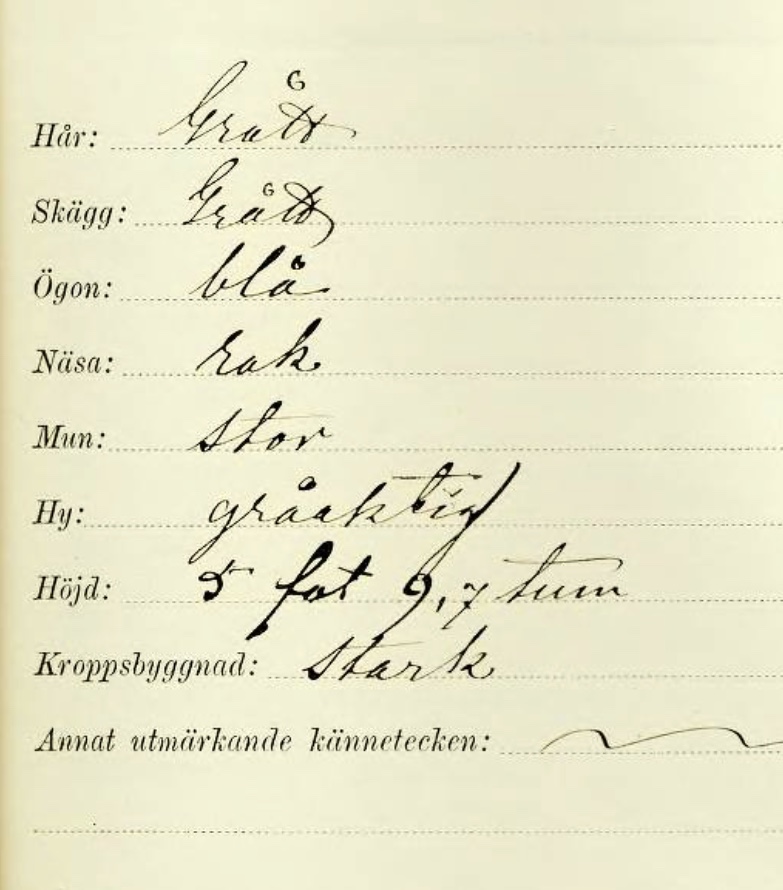 Hår: Grått
Skägg: Grått
Ögon: blå
Näsa: rak
Mun: stor
Hy: gråaktig
Höjd: 5 fot 9,7 tum
Kroppsbyggnad: stark
Annat utmärkande kännetecken: